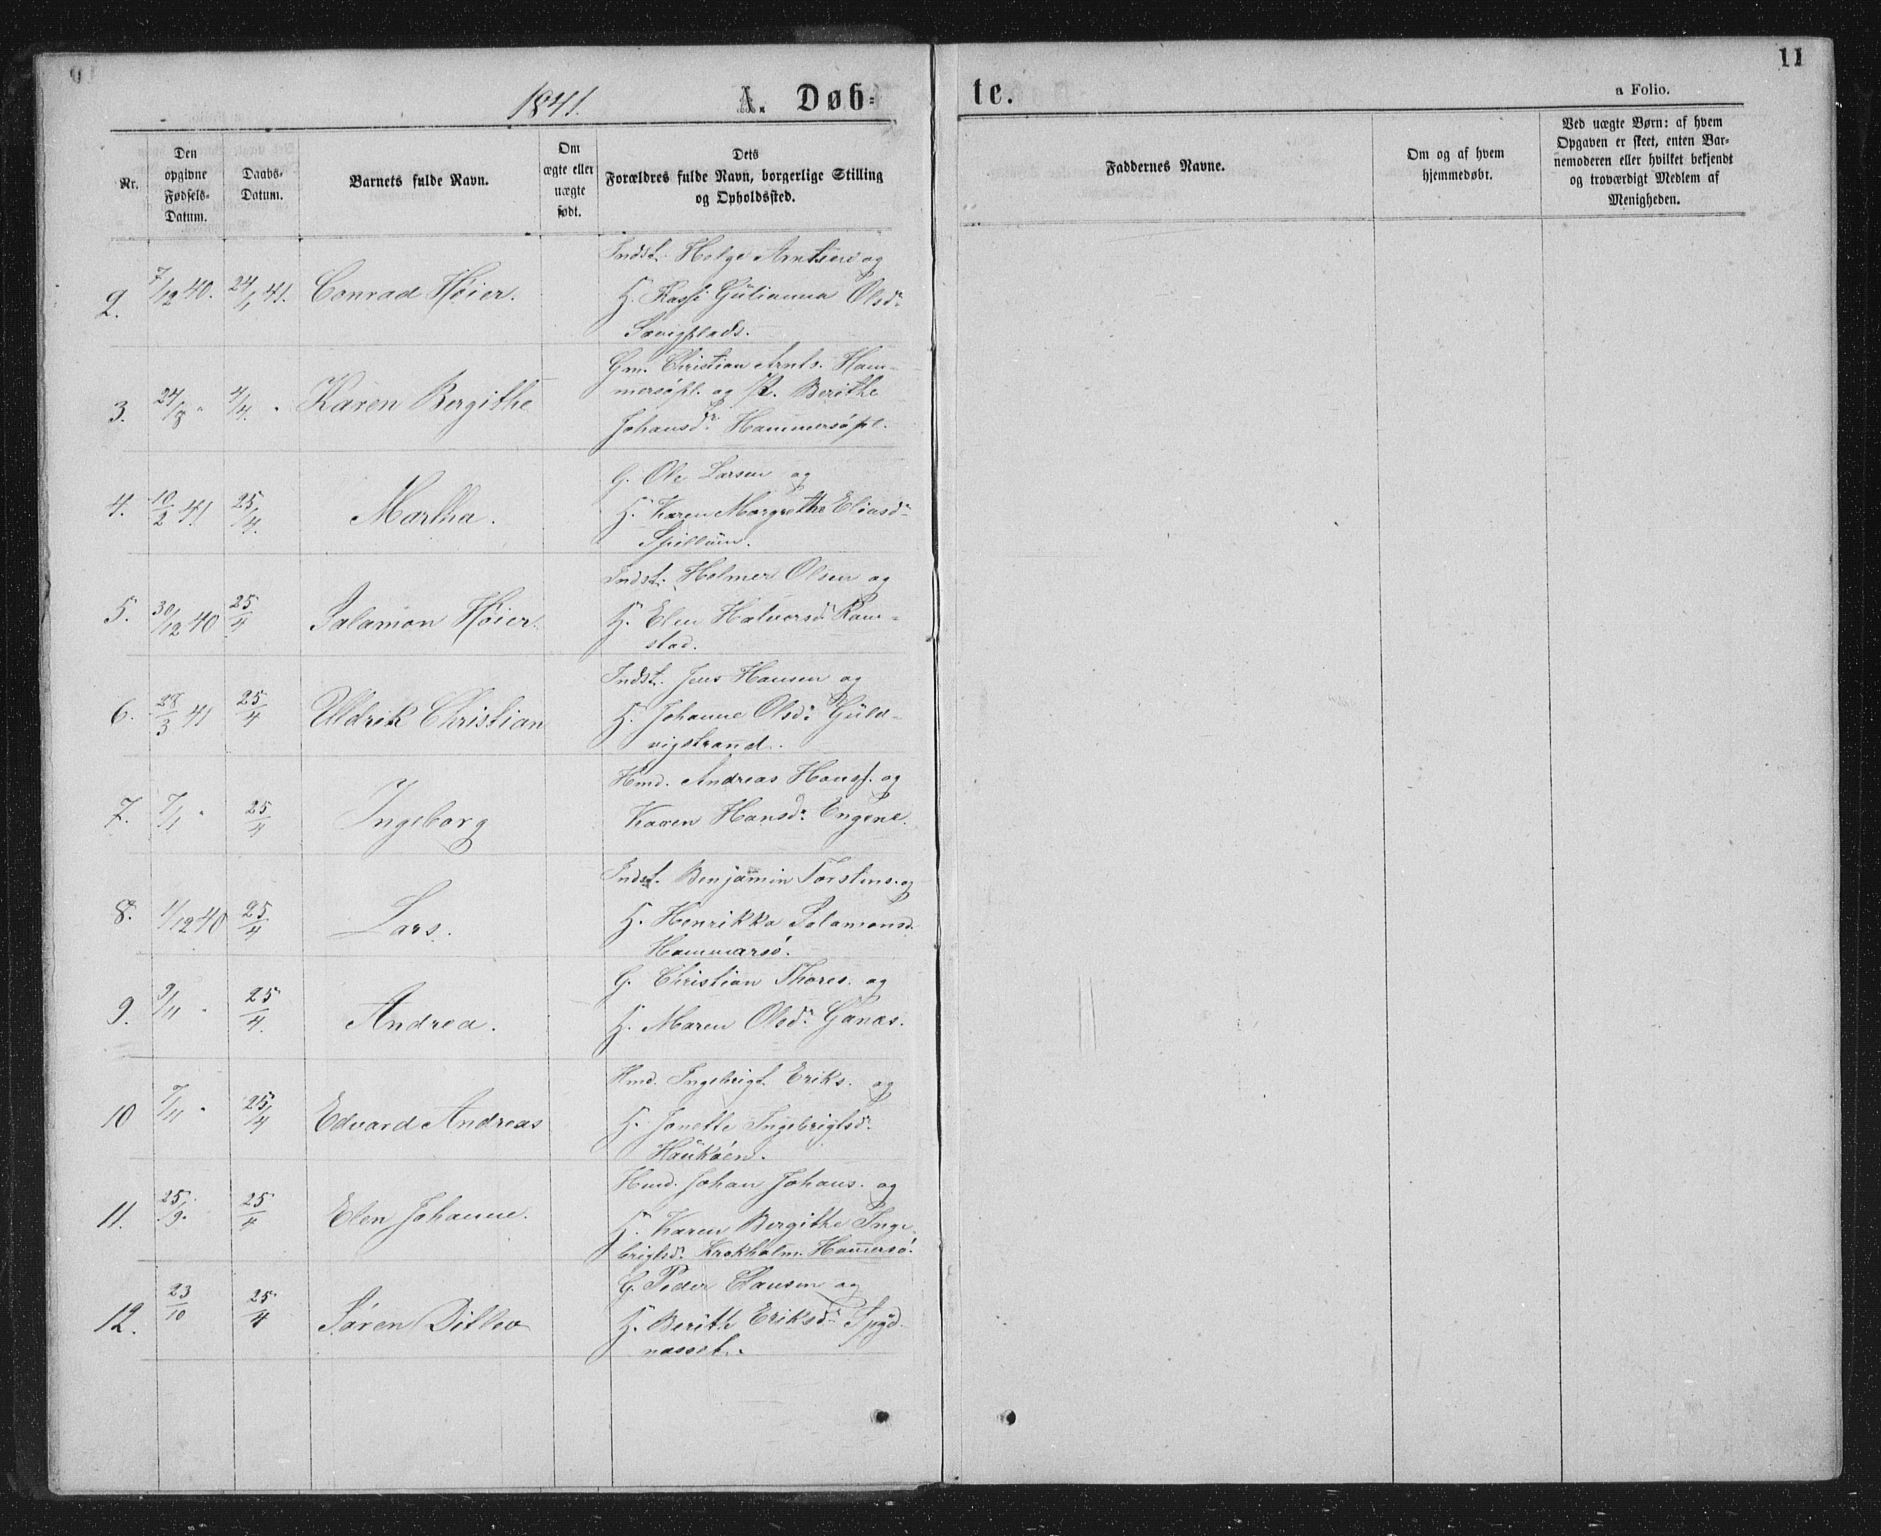 1841. A. Døb-
te.
11
a Folio.
Nr.
Den opgivne Fødsels-Datum.
Daabs-Datum.
Barnets fulde Navn.
Om ægte eller uægte født.
Dets Forældres fulde Navn, borgerlige Stilling og Opholdssted.
Faddernes Navne.
Om og af hvem hjemmedøbt.
Ved uægte Børn: af hvem Opgaven er skeet, enten Barnemoderen eller hvilket bekjendt og troværdigt Medlem af Menigheden.
Indst. Helge Arntsen og
2. 7/12 40. 24/1 41. Conrad Høier. H. Gulianna Olsdr
Gm. Christian Arnts. Ham-
3. 24/3 " 4/4. " Karen Bergithe mersøpl. og K. Berithe
Johansdr Hammersøpl.
G. Ole Larsen og
4. 10/2 41 25/4. Martha. H. Karen Margrethe Eliasdr
Spillum.
Indst. Holmer Olsen og
5. 30/12 40 25/4 Salamon Høier. H. Elen Halvorsdr Ram-
stad.
Indst. Jens Hansen og
6. 28/3 41 25/4 Uldrik Christian H. Johanne Olsdr Guld-
vigstrand.
Hmd. Andreas Hans. og
7. 7/1 " 25/4 Ingeborg Karen Hansdr Engene.
Indst. Benjamin Torstens. og
8. 1/12 40 25/4 Lars. H. Henrikka Salamonsd.
Hammersø.
G. Christian Thores. og
9. 9/11 " 25/4. Andrea. H. Maren Olsdr Ganæs.
Hmd. Ingebrigt Eriks. og
10 7/11 " 25/4 Edvard Andreas H. Janette Ingebrigtsdr
Haukøen.
Hmd. Johan Johans. og
11. 25/9. 25/4 Elen Johanne. H. Karen Bergithe Inge-
brigtsdr Krokholm. Hamersø.
G. Peder Clausen og
12. 23/10 25/4 Søren Ditlev H. Berith Eriksdr Spyd-
næsset.